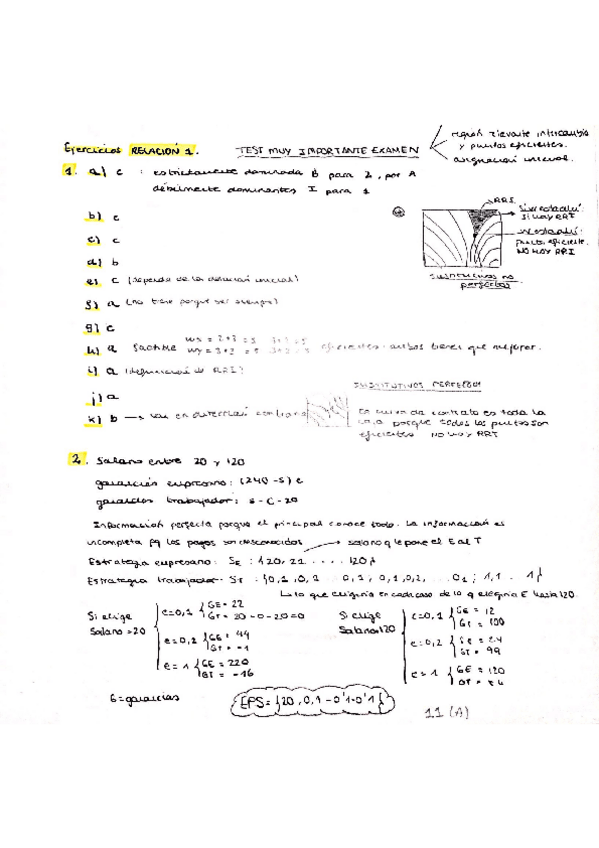 Ejercicios RELACIÓN 1. TEST MUY IMPORTANTE EXAMEN
región relevante intercambio
y puntos eficientes.
asignación inicial.
1. a) c : estrictamente dominada B para 2, por A
débilmente dominantes I para 1
b) c
c) c
d) b
e) c (depende de la dotación inicial)
f) a (no tiene porque ser siempre)
g) c
h) a factible eficientes: ambos tienen que mejorar.
i) a (definición de RRI)
j) a
k) b → van en dirección
RRI
SI HAY RRI
punto eficiente
NO HAY RRI
sustitutivos no
perfectos
SUSTITUTIVOS PERFECTOS
La curva de contrato es toda la
caja porque todos los puntos son
eficientes NO HAY RRI
2. Salario entre 20 y 120
ganancias empresario: (240-S)e
ganancias trabajador: S-C-20
Información perfecta porque el principal conoce todo. La información es
incompleta pq los pagos son desconocidos → salario q le pone el E al T
Estrategia empresario: SE: {20, 21 .... 120}
Estrategia trabajador ST: {0,1, 0,2 ... 0,1; 0,1, 0,2, ... 0,1; 1,1 . 1}
Lo que elegiría en cada caso de lo q elegiría E hasta 120.
Si elige
Salario=20
e=0,1 { GE= 22
GT= 20-0-20=0
e=0,2 { GE= 44
GT= -1
e=1 { GE= 220
GT= -16
Si elige
Salario=120
e=0,1 { GE= 12
GT= 100
e=0,2 { GE= 24
GT= 99
e=1 { GE= 120
GT=
G=ganancias
EPS= {20, 0,1-0'1-0'1}
11 (A)